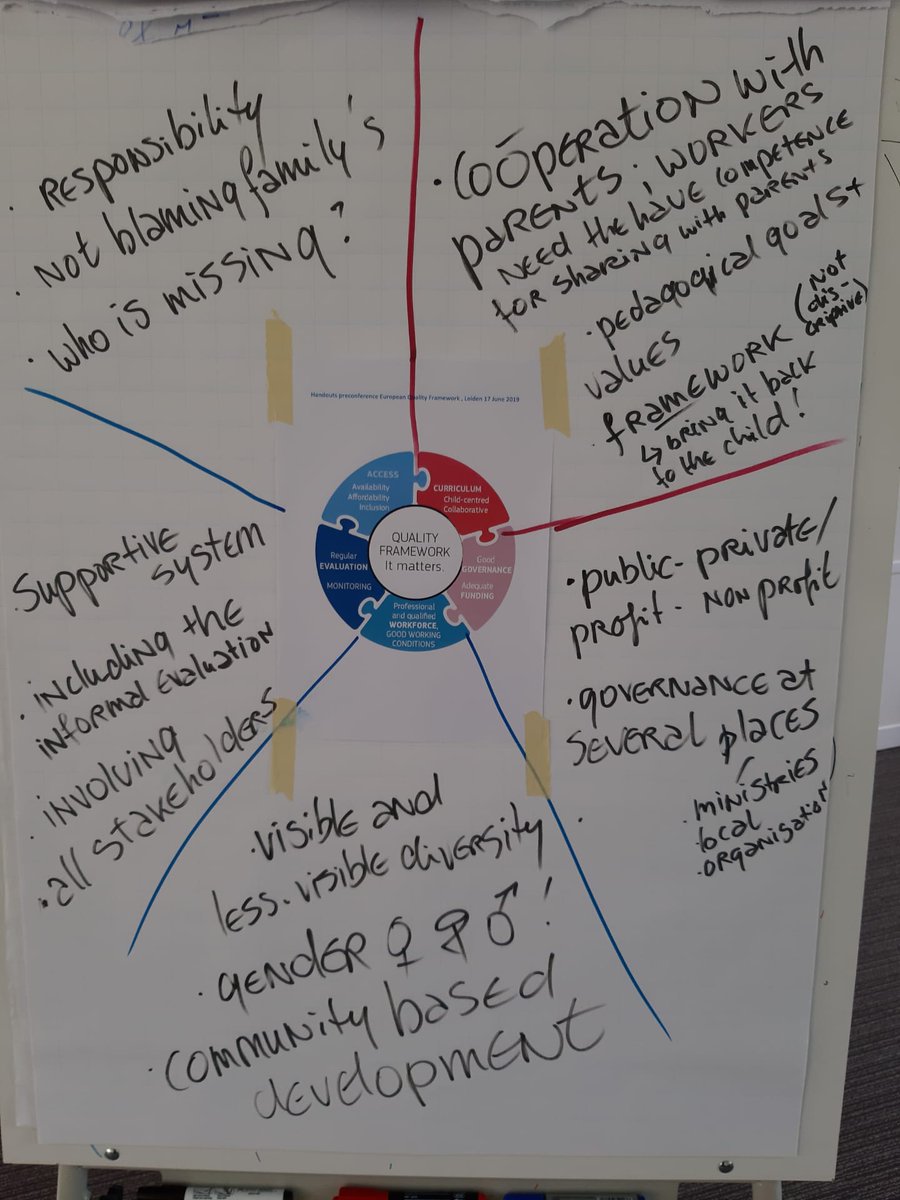 · Responsibility
· Not blaming family's
· who is missing?
· Coöperation with
parents; workers
need the have competence
for sharing with parents
· pedagogical goals +
values
· framework (not
dis-
criptive)
↳ bring it back
to the child!
Handouts preconference European Quality Framework , Leiden 17 June 2019
ACCESS
Availability
Affordability
Inclusion
CURRICULUM
Child-centred
Collaborative
QUALITY
FRAMEWORK
It matters.
Regular
EVALUATION
MONITORING
Good
GOVERNANCE
Adequate
FUNDING
Professional
and qualified
WORKFORCE,
GOOD WORKING
CONDITIONS
Supportive
system
· including the
informal evaluation
· involving
· all stakeholders
· public - private /
profit - non profit
· governance at
several places
· ministries
· local
· organisation
· visible and
less. visible diversity
· gender ♀ ♂ !
· community based
development